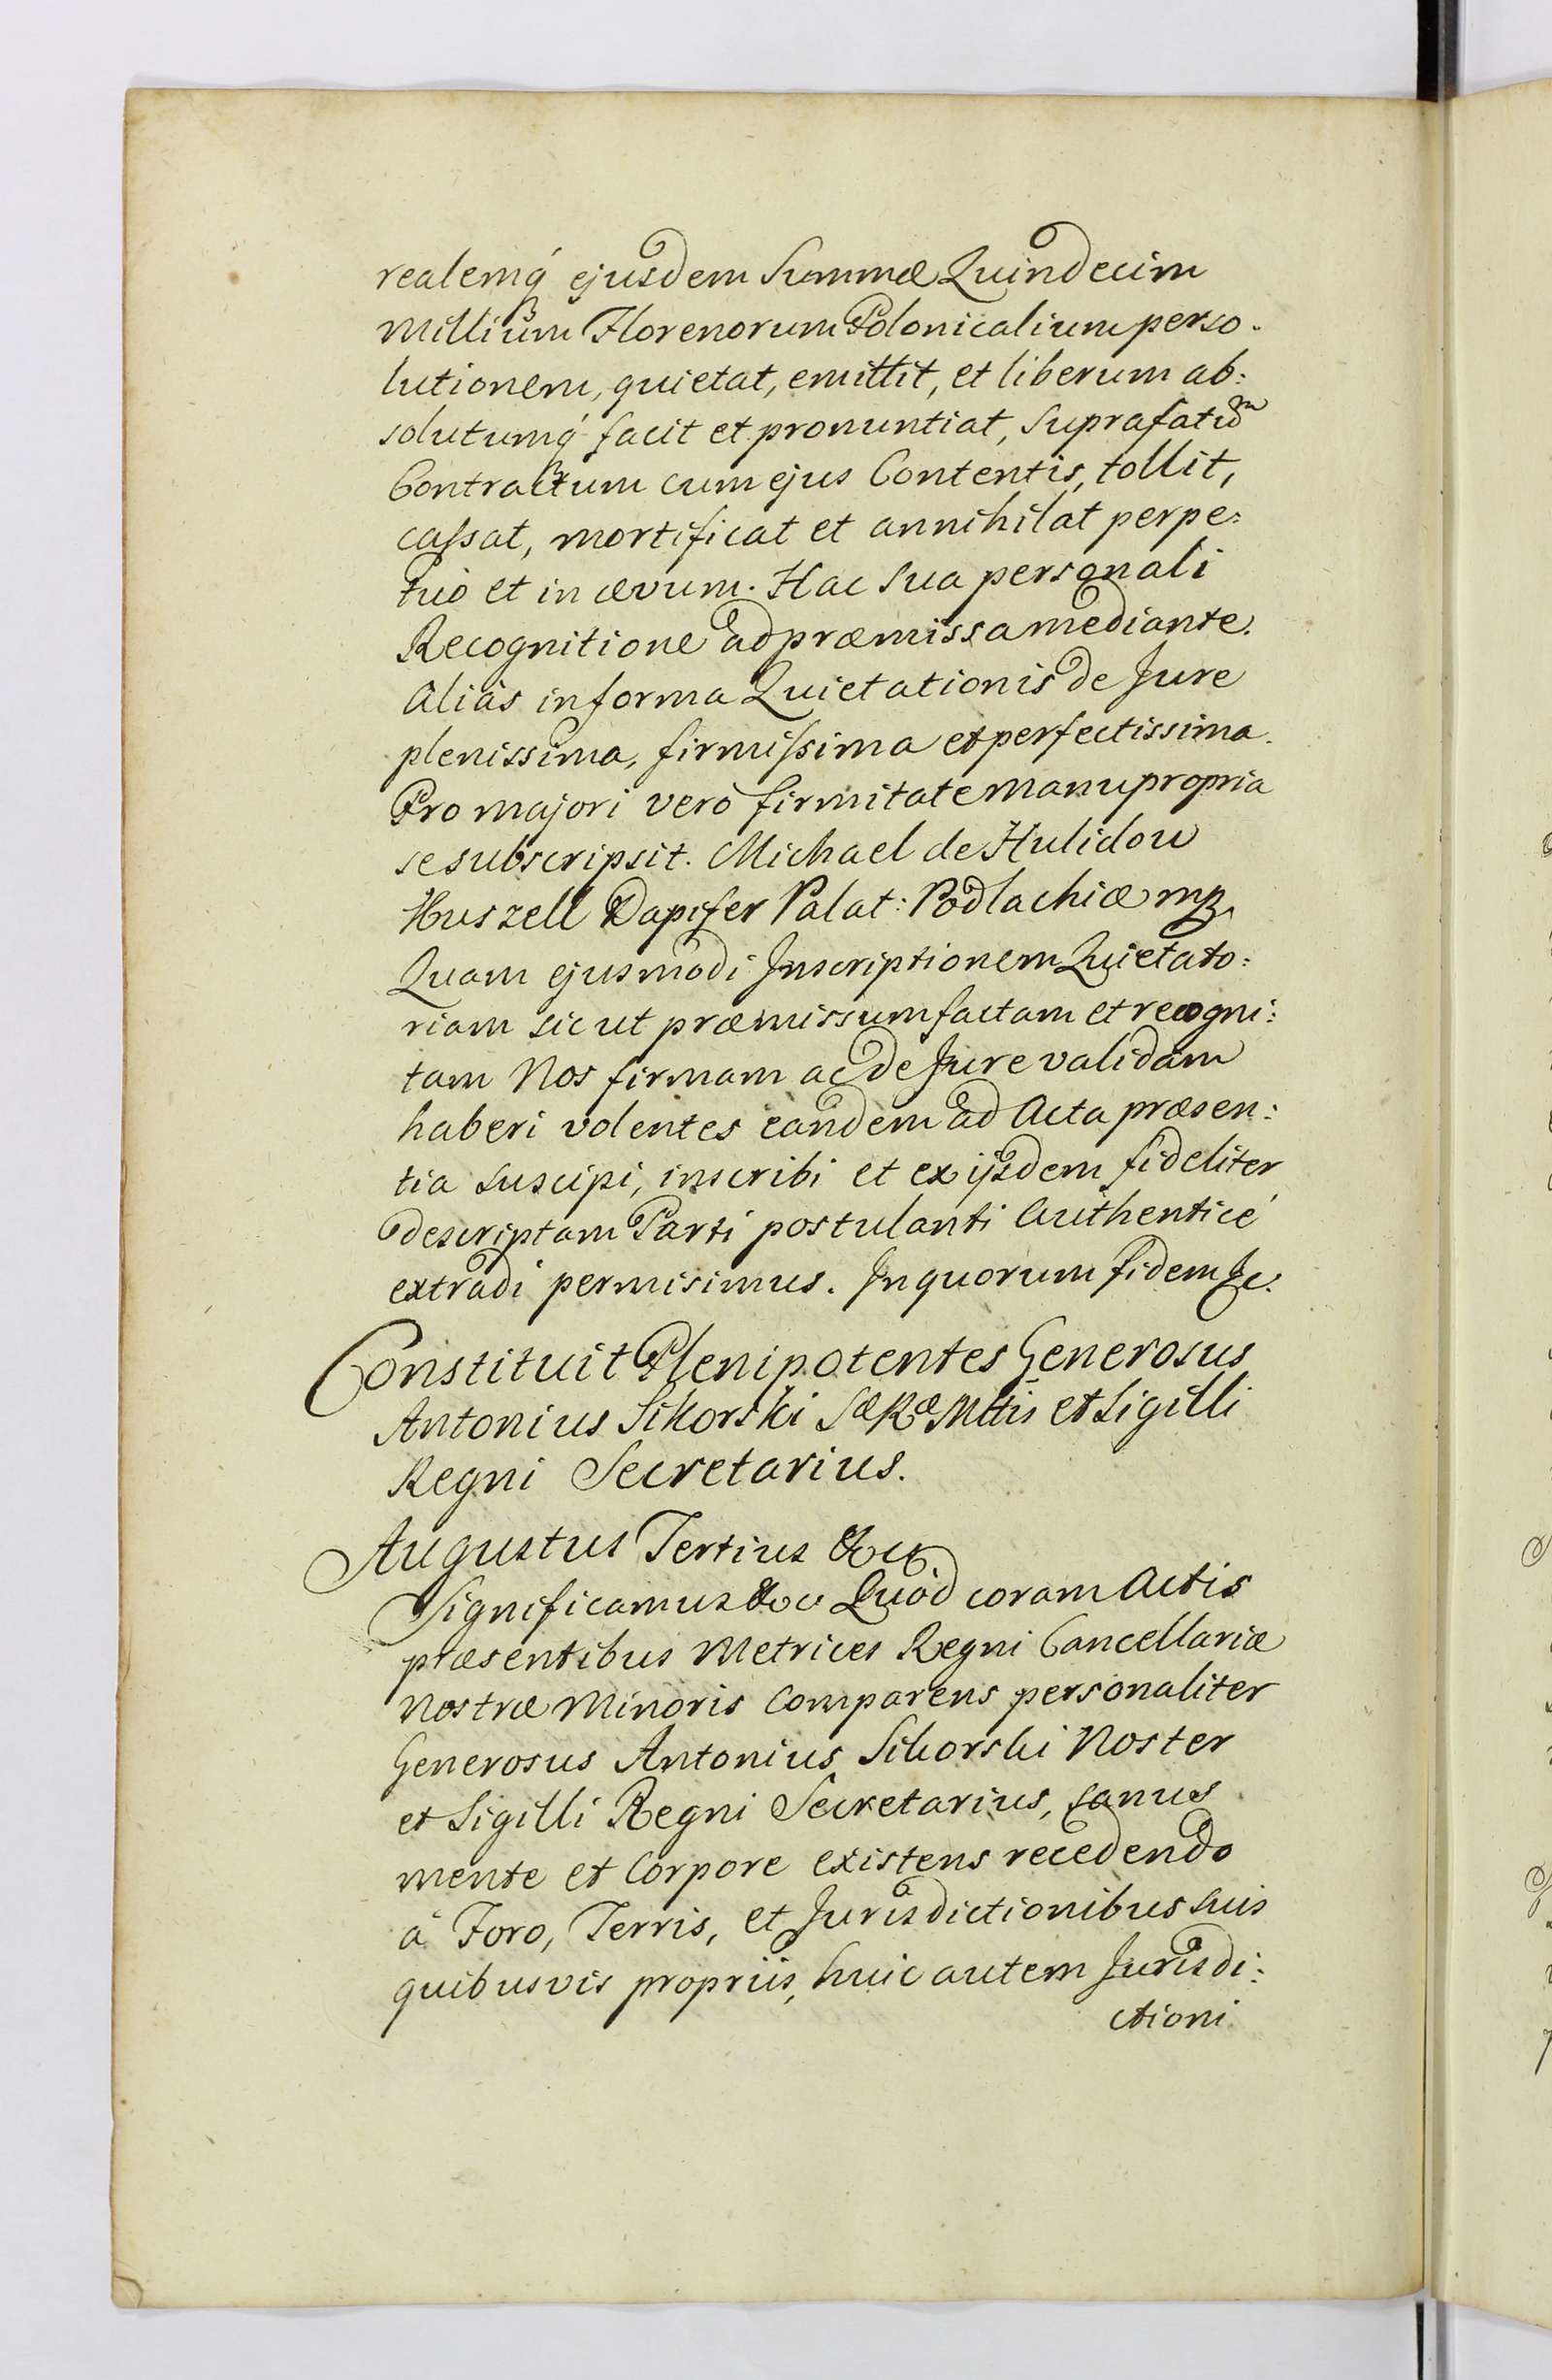 realemq́ ejusdem Summæ Quindecim
Millium Florenorum Polonicalium perso-
lutionem, quietat, emittit, et liberum ab:
solutumq́ facit et pronuntiat, Suprafatum
Contractum cum ejus Contentis, tollit,
cassat, mortificat et annihilat perpe:
tuò et in ævum. Hac Sua personali
Recognitione ad præmissa mediante.
Aliàs in forma Quietationis de Jure
plenissima, firmissima et perfectissima.
Pro majori verò firmitate Manu propria
se subscripsit. Michael de Hulidow
Huszell Dapifer Palat: Podlachiæ mp.
Quam ejusmodi Inscriptionem Quietato:
riam sicut præmissum factam et recogni:
tam Nos firmam ac de Jure validam
haberi volentes eandem ad Acta præsen:
tia suscipi, inscribi et ex ijsdem fideliter
descriptam Parti postulanti Authenticè
extradi permisimus. In quorum fidem &c.
Constituit Plenipotentes Generosus
Antonius Sikorski Sæ Ræ Mttis et Sigilli
Regni Secretarius.
Augustus Tertius &c
Significamus &c Quòd coram Actis
præsentibus Metrices Regni Cancellariæ
Nostræ Minoris Comparens personaliter
Generosus Antonius Sikorski Noster
et Sigilli Regni Secretarius, sanus
mente et Corpore existens recedendo
à Foro, Terris, et Jurisdictionibus suis
quibusvis propriis, huic autem Jurisdi:
ctioni